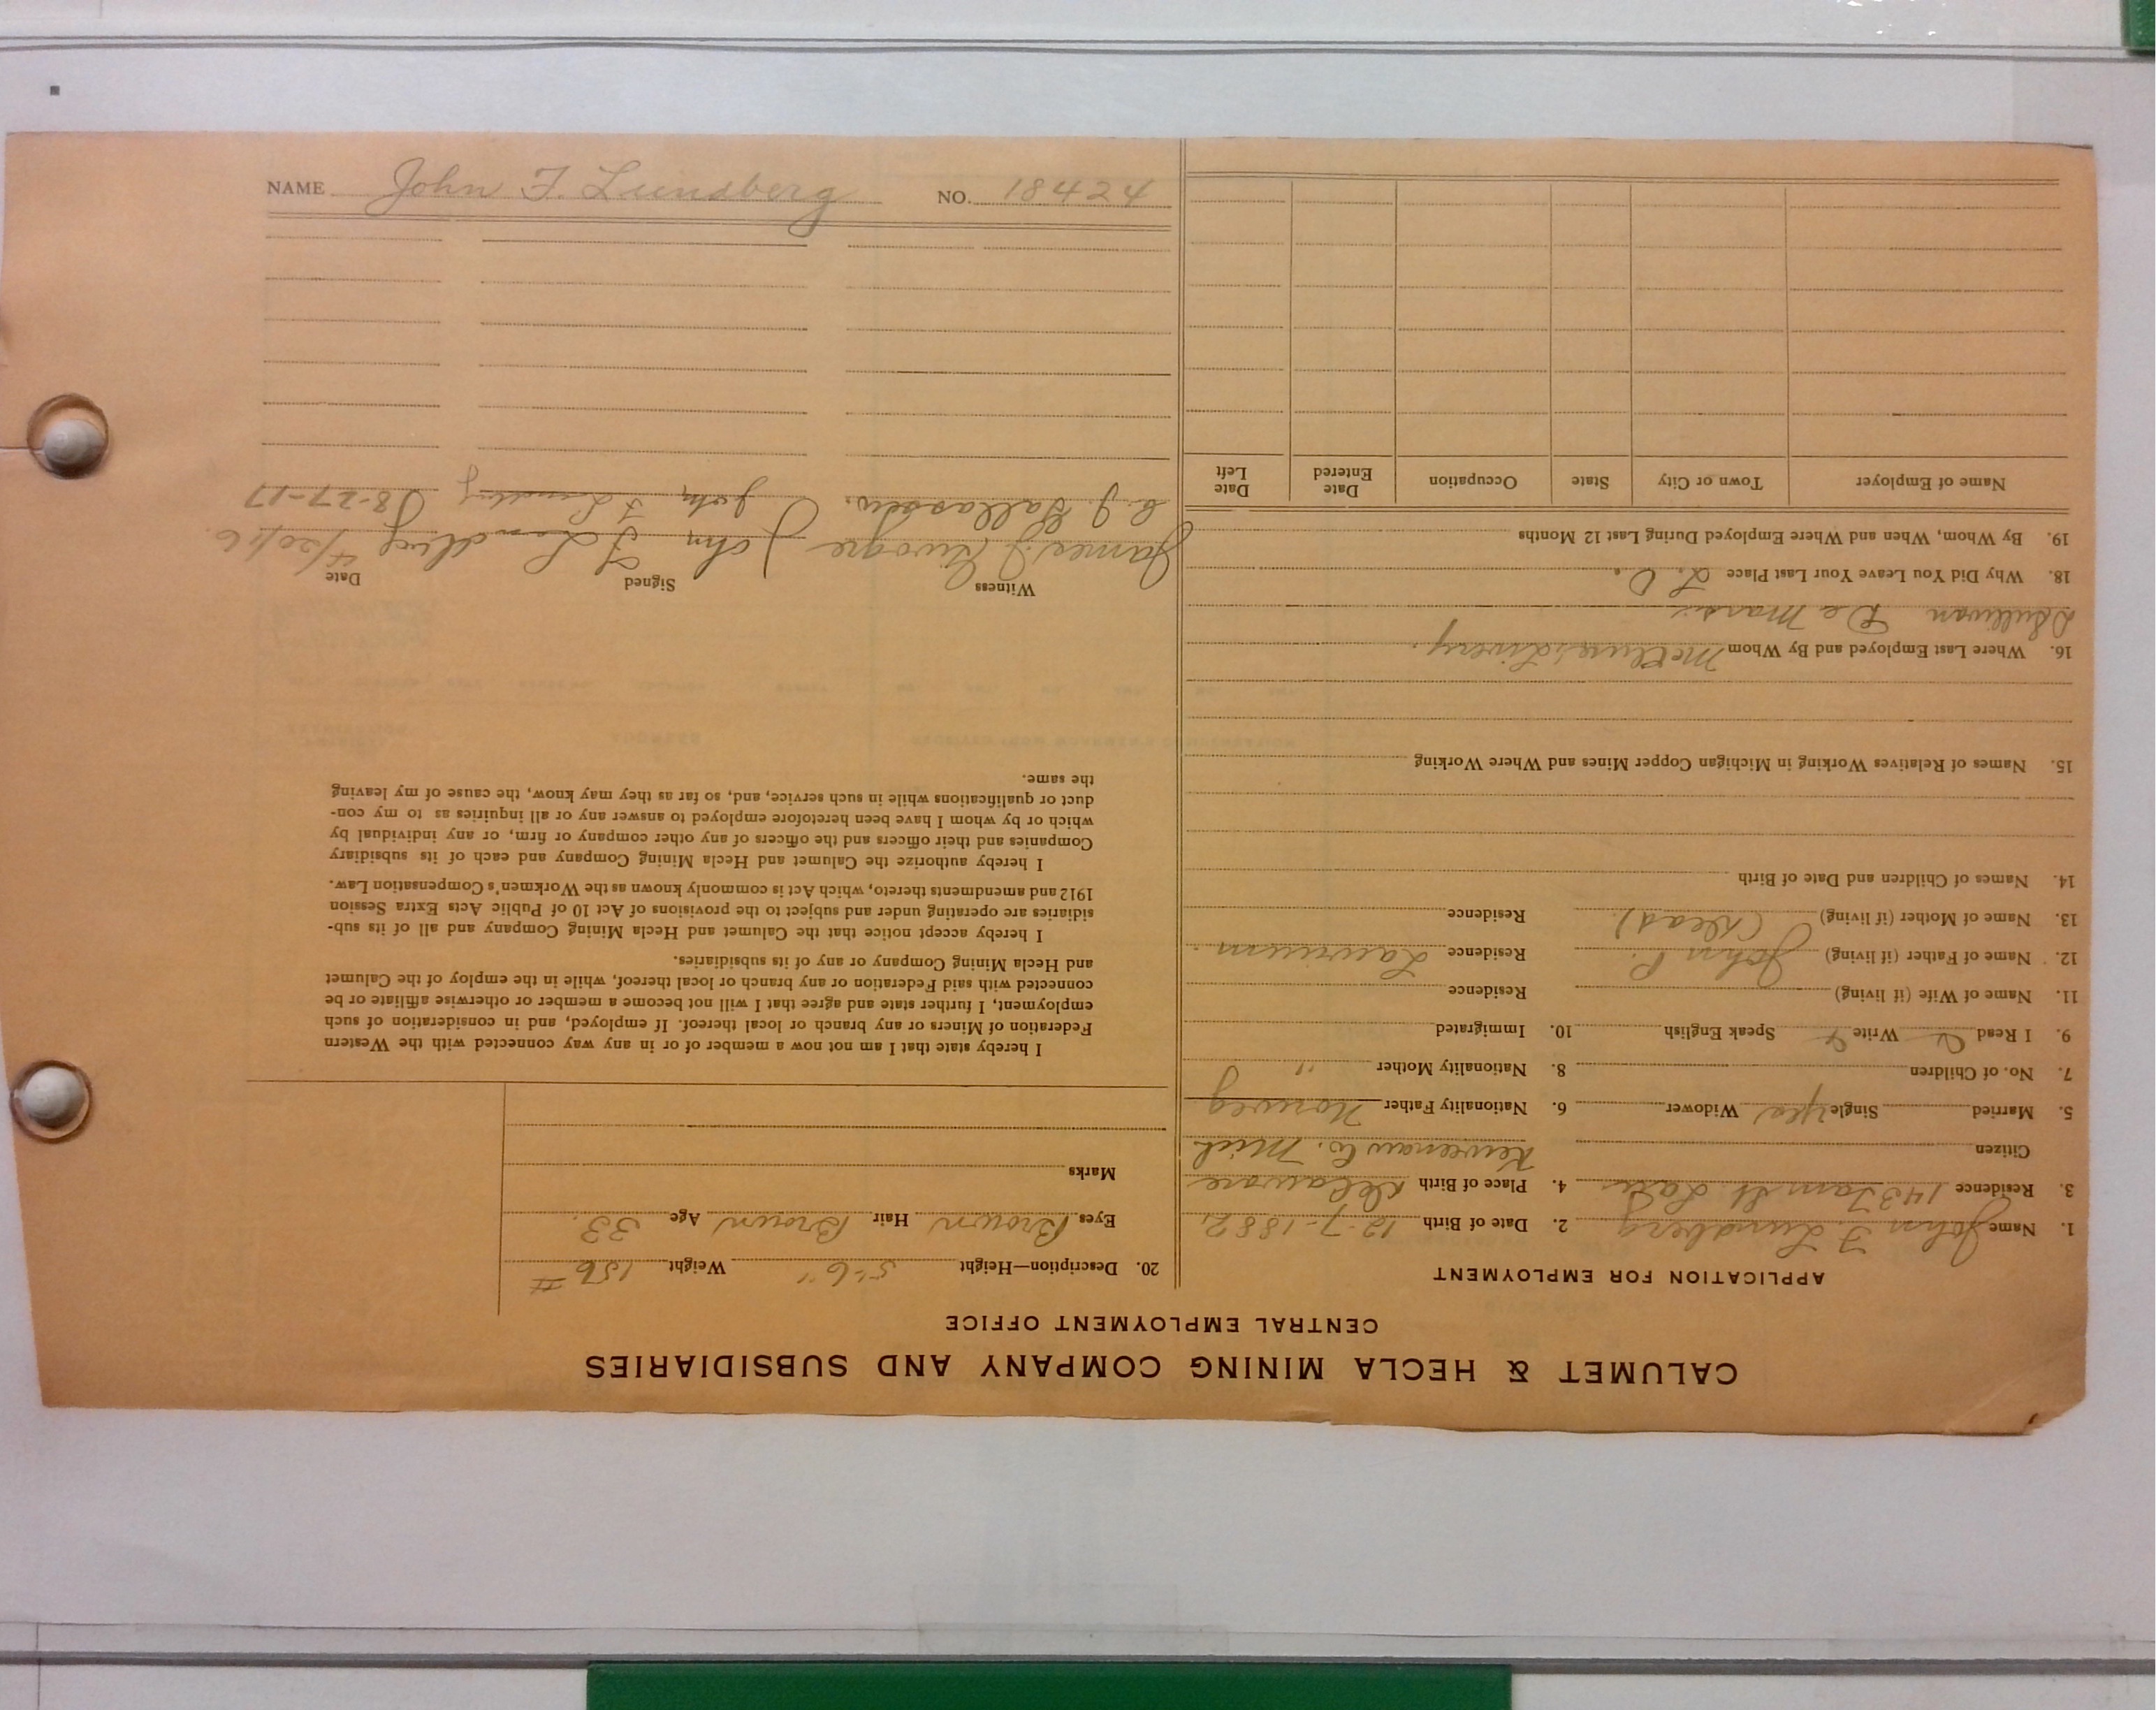 CALUMET & HECLA MINING COMPANY AND SUBSIDIARIES
CENTRAL EMPLOYMENT OFFICE
APPLICATION FOR EMPLOYMENT
1. Name John F. Lundberg 2. Date of Birth 12-7-1882
3. Residence 1437 Tam St Lau 4. Place of Birth Delaware
Citizen Keweenaw Co. Mich
5. Married Single yes Widower 6. Nationality Father Norweg
7. No. of Children 8. Nationality Mother "
9. I Read Write Speak English 10. Immigrated
11. Name of Wife (if living) Residence
12. Name of Father (if living) John P. Residence Laurium.
13. Name of Mother (if living) (Dead) Residence
14. Names of Children and Date of Birth
15. Names of Relatives Working in Michigan Copper Mines and Where Working
16. Where Last Employed and By Whom McClure's Livery.
18. Why Did You Leave Your Last Place L. O.
19. By Whom, When and Where Employed During Last 12 Months
Name of Employer Town or City State Occupation Date Entered Date Left
20. Description—Height 5'-6" Weight 156 #
Eyes Brown Hair Brown Age 33.
Marks
I hereby state that I am not now a member of or in any way connected with the Western
Federation of Miners or any branch or local thereof. If employed, and in consideration of such
employment, I further state and agree that I will not become a member or otherwise affiliate or be
connected with said Federation or any branch or local thereof, while in the employ of the Calumet
and Hecla Mining Company or any of its subsidiaries.
I hereby accept notice that the Calumet and Hecla Mining Company and all of its sub-
sidiaries are operating under and subject to the provisions of Act 10 of Public Acts Extra Session
1912 and amendments thereto, which Act is commonly known as the Workmen's Compensation Law.
I hereby authorize the Calumet and Hecla Mining Company and each of its subsidiary
Companies and their officers and the officers of any other company or firm, or any individual by
which or by whom I have been heretofore employed to answer any or all inquiries as to my con-
duct or qualifications while in such service, and, so far as they may know, the cause of my leaving
the same.
Witness Signed Date
James John F Lundberg
John F Lundberg 8-27-17
NAME John F. Lundberg NO. 18424